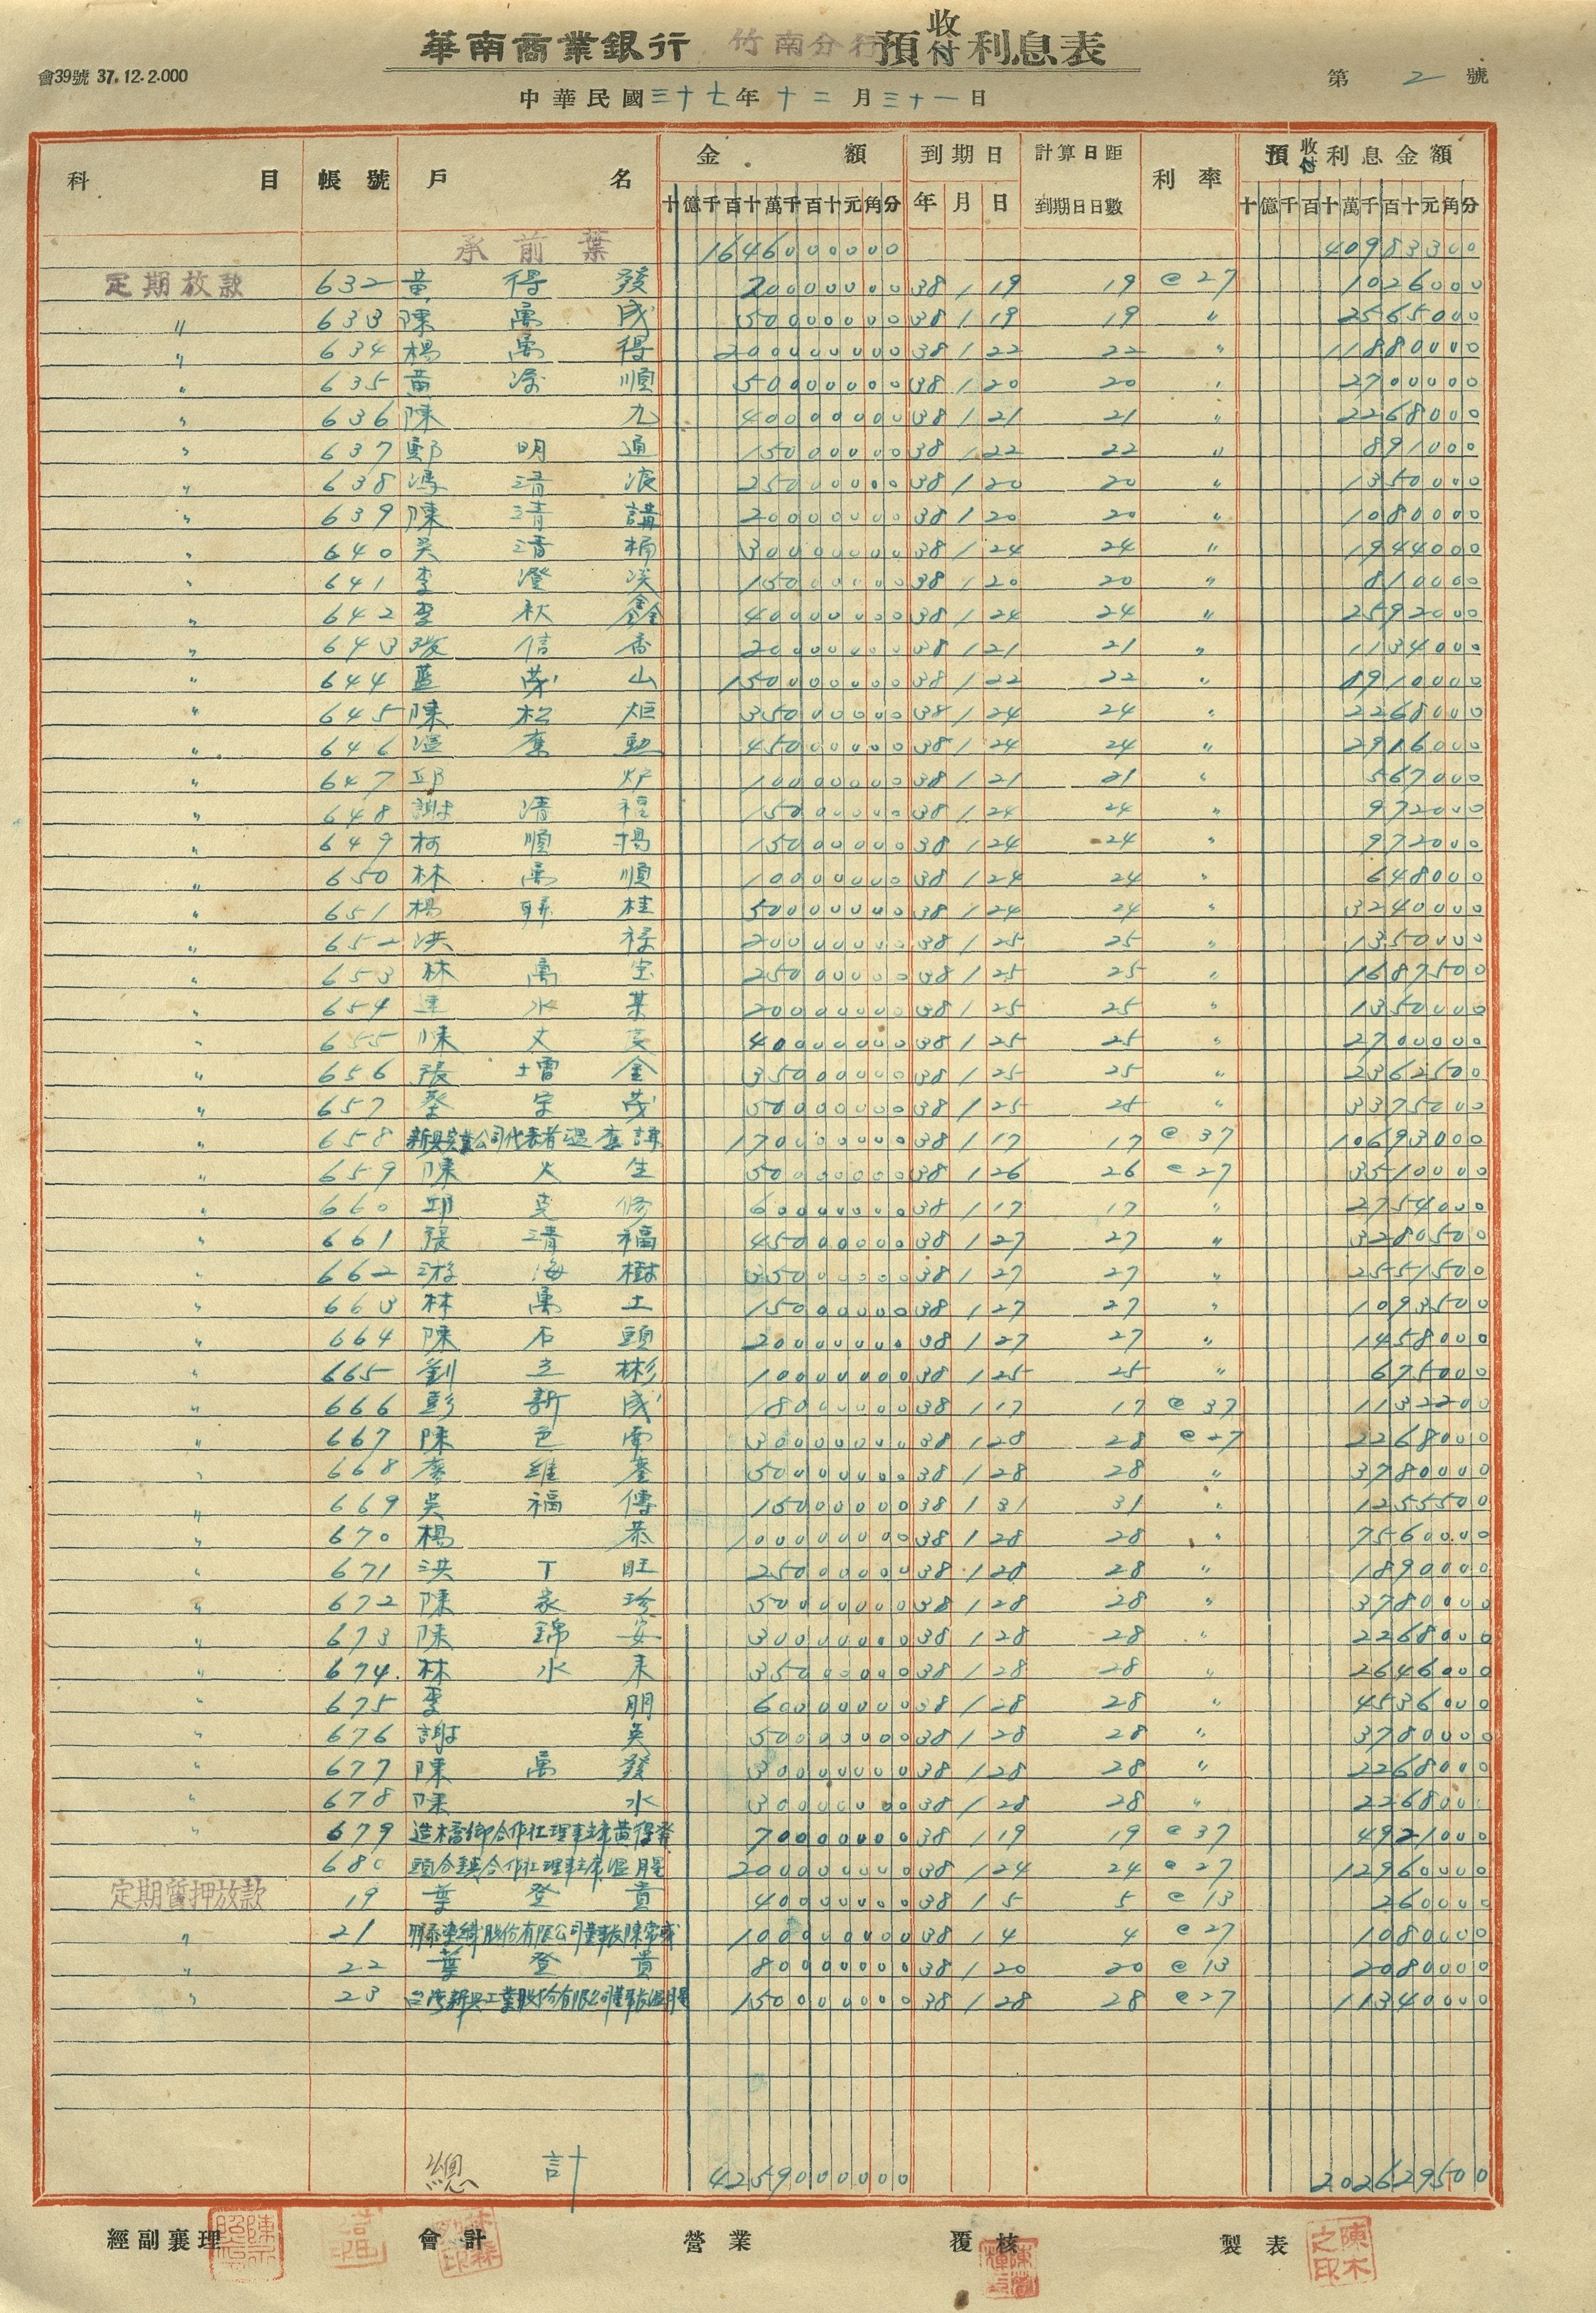 華南商業銀行 竹南分行 預收付利息表
會39號 37.12.2.000
第 2 號
中華民國三十七年十二月三十一日
科目 帳號 戶名 金額 到期日 計算日距到期日日數 利率 預收付利息金額
十億千百十萬千百十元角分 年 月 日 十億千百十萬千百十元角分
承前葉 1646000000 40983300
定期放款 632 黃得發 20000000 38 1 19 19 @27 1026000
〃 633 陳萬成 50000000 38 1 19 19 〃 2565000
〃 634 楊萬得 200000000 38 1 22 22 〃 11880000
〃 635 黃 順 50000000 38 1 20 20 〃 2700000
〃 636 陳九 40000000 38 1 21 21 〃 2268000
〃 637 鄭明通 15000000 38 1 22 22 〃 891000
〃 638 馮清滾 25000000 38 1 20 20 〃 1350000
〃 639 陳清講 20000000 38 1 20 20 〃 1080000
〃 640 吳清桶 30000000 38 1 24 24 〃 1944000
〃 641 李澄 15000000 38 1 20 20 〃 810000
〃 642 李秋鑫 40000000 38 1 24 24 〃 2592000
〃 643 張信香 20000000 38 1 21 21 〃 1134000
〃 644 藍茂山 150000000 38 1 22 22 〃 8910000
〃 645 陳松炬 35000000 38 1 24 24 〃 2268000
〃 646 溫 勳 45000000 38 1 24 24 〃 2916000
〃 647 邱炉 10000000 38 1 21 21 〃 567000
〃 648 謝清 15000000 38 1 24 24 〃 972000
〃 649 柯順揚 15000000 38 1 24 24 〃 972000
〃 650 林萬順 10000000 38 1 24 24 〃 648000
〃 651 楊 桂 50000000 38 1 24 24 〃 3240000
〃 652 洪祿 20000000 38 1 25 25 〃 1350000
〃 653 林萬宝 25000000 38 1 25 25 〃 1687500
〃 654 水 20000000 38 1 25 25 〃 1350000
〃 655 陳文 40000000 38 1 25 25 〃 2700000
〃 656 張增金 35000000 38 1 25 25 〃 2362500
〃 657 蔡 茂 50000000 38 1 25 25 〃 3375000
〃 658 新興 公司代表者溫 170000000 38 1 17 17 @37 10693000
〃 659 陳火生 50000000 38 1 26 26 @27 3510000
〃 660 邱克修 60000000 38 1 17 17 〃 2754000
〃 661 張清福 45000000 38 1 27 27 〃 3280500
〃 662 游海樹 35000000 38 1 27 27 〃 2551500
〃 663 林萬土 15000000 38 1 27 27 〃 1093500
〃 664 陳石頭 20000000 38 1 27 27 〃 1458000
〃 665 劉立彬 10000000 38 1 25 25 〃 675000
〃 666 彭新成 18000000 38 1 17 17 @37 1132200
〃 667 陳 南 30000000 38 1 28 28 @27 2268000
〃 668 維 50000000 38 1 28 28 〃 3780000
〃 669 吳福傳 15000000 38 1 31 31 〃 1255500
〃 670 楊恭 100000000 38 1 28 28 〃 7560000
〃 671 洪丁旺 25000000 38 1 28 28 〃 1890000
〃 672 陳家珍 50000000 38 1 28 28 〃 3780000
〃 673 陳錦安 30000000 38 1 28 28 〃 2268000
〃 674 林水來 35000000 38 1 28 28 〃 2646000
〃 675 李朋 60000000 38 1 28 28 〃 4536000
〃 676 謝英 50000000 38 1 28 28 〃 3780000
〃 677 陳萬發 30000000 38 1 28 28 〃 2268000
〃 678 陳水 30000000 38 1 28 28 〃 2268000
〃 679 造橋鄉合作社理事主席黃得發 70000000 38 1 19 19 @37 4921000
680 頭份鎮合作社理事主席溫 200000000 38 1 24 24 @27 12960000
定期質押放款 19 葉登貴 40000000 38 1 5 5 @13 260000
〃 21 染織股份有限公司董事長陳 100000000 38 1 4 4 @27 1080000
〃 22 葉登貴 80000000 38 1 20 20 @13 2080000
〃 23 台灣新興工業股份有限公司董事長溫 150000000 38 1 28 28 @27 11340000
總計 4259000000 202629500
經副襄理 會計 營業 覆核 製表
陳木之印